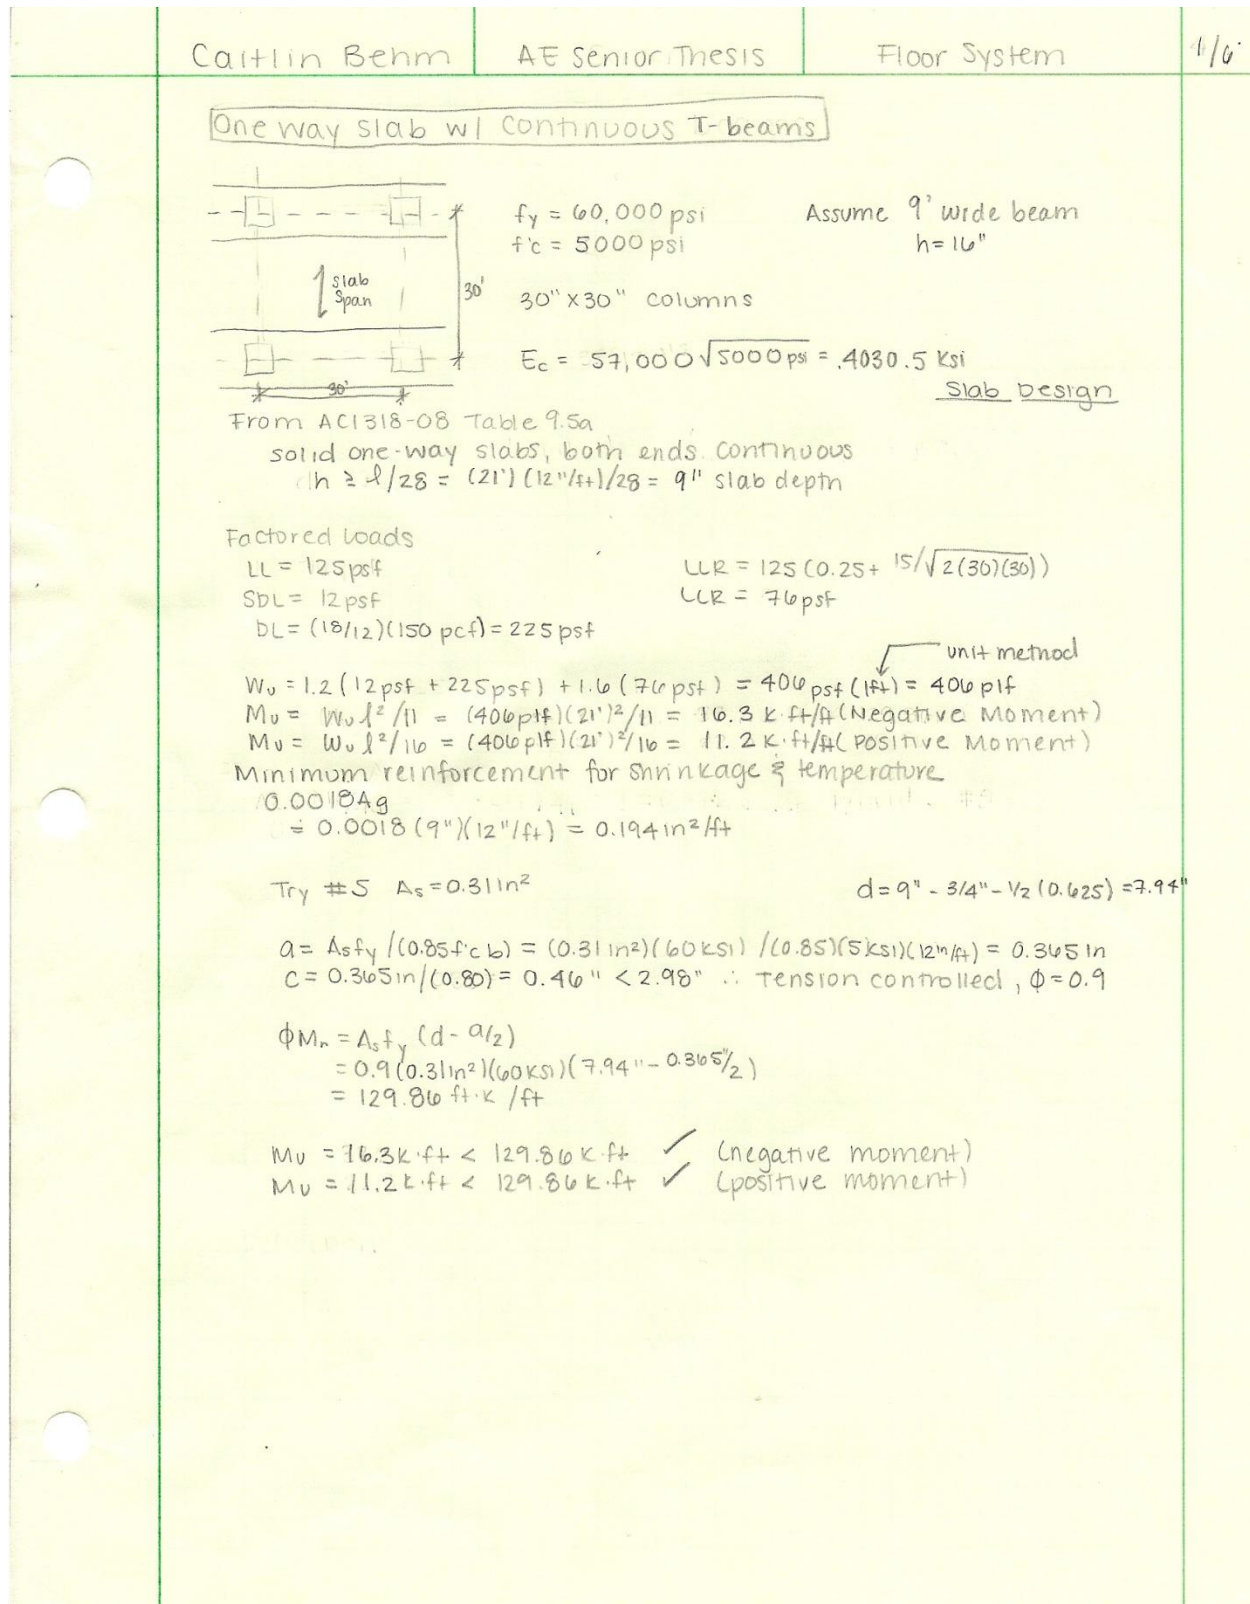 Caitlin Behm AE Senior Thesis Floor System 1/6
One way slab w/ continuous T-beams
fy = 60,000 psi Assume 9' wide beam
f'c = 5000 psi h=16"
slab
span
30'
30" x 30" columns
Ec = 57,000√5000 psi = 4030.5 ksi
30'
Slab Design
From ACI318-08 Table 9.5a
solid one-way slabs, both ends continuous
h ≥ l/28 = (21')(12"/ft)/28 = 9" slab depth
Factored Loads
LL = 125psf LLR = 125 (0.25 + 15/√2(30)(30))
SDL = 12 psf LLR = 76psf
DL = (18/12)(150 pcf) = 225 psf
unit method
Wu = 1.2 (12psf + 225psf) + 1.6 (76psf) = 406 psf (1ft) = 406 plf
Mu = Wu l²/11 = (406plf)(21')²/11 = 16.3 k·ft/ft (Negative Moment)
Mu = Wu l²/16 = (406plf)(21')²/16 = 11.2 k·ft/ft (Positive Moment)
Minimum reinforcement for shrinkage & temperature
0.0018Ag
= 0.0018 (9")(12"/ft) = 0.194 in²/ft
Try #5 As = 0.31in² d = 9" - 3/4" - 1/2 (0.625) = 7.94"
a = Asfy /(0.85f'c b) = (0.31 in²)(60ksi) /(0.85)(5ksi)(12in/ft) = 0.365 in
c = 0.365in/(0.80) = 0.46" < 2.98" ∴ Tension controlled, φ=0.9
φMn = Asfy (d - a/2)
= 0.9(0.31in²)(60ksi)(7.94" - 0.365"/2)
= 129.86 ft·k /ft
Mu = 16.3k·ft < 129.86 k·ft ✓ (negative moment)
Mu = 11.2k·ft < 129.86 k·ft ✓ (positive moment)